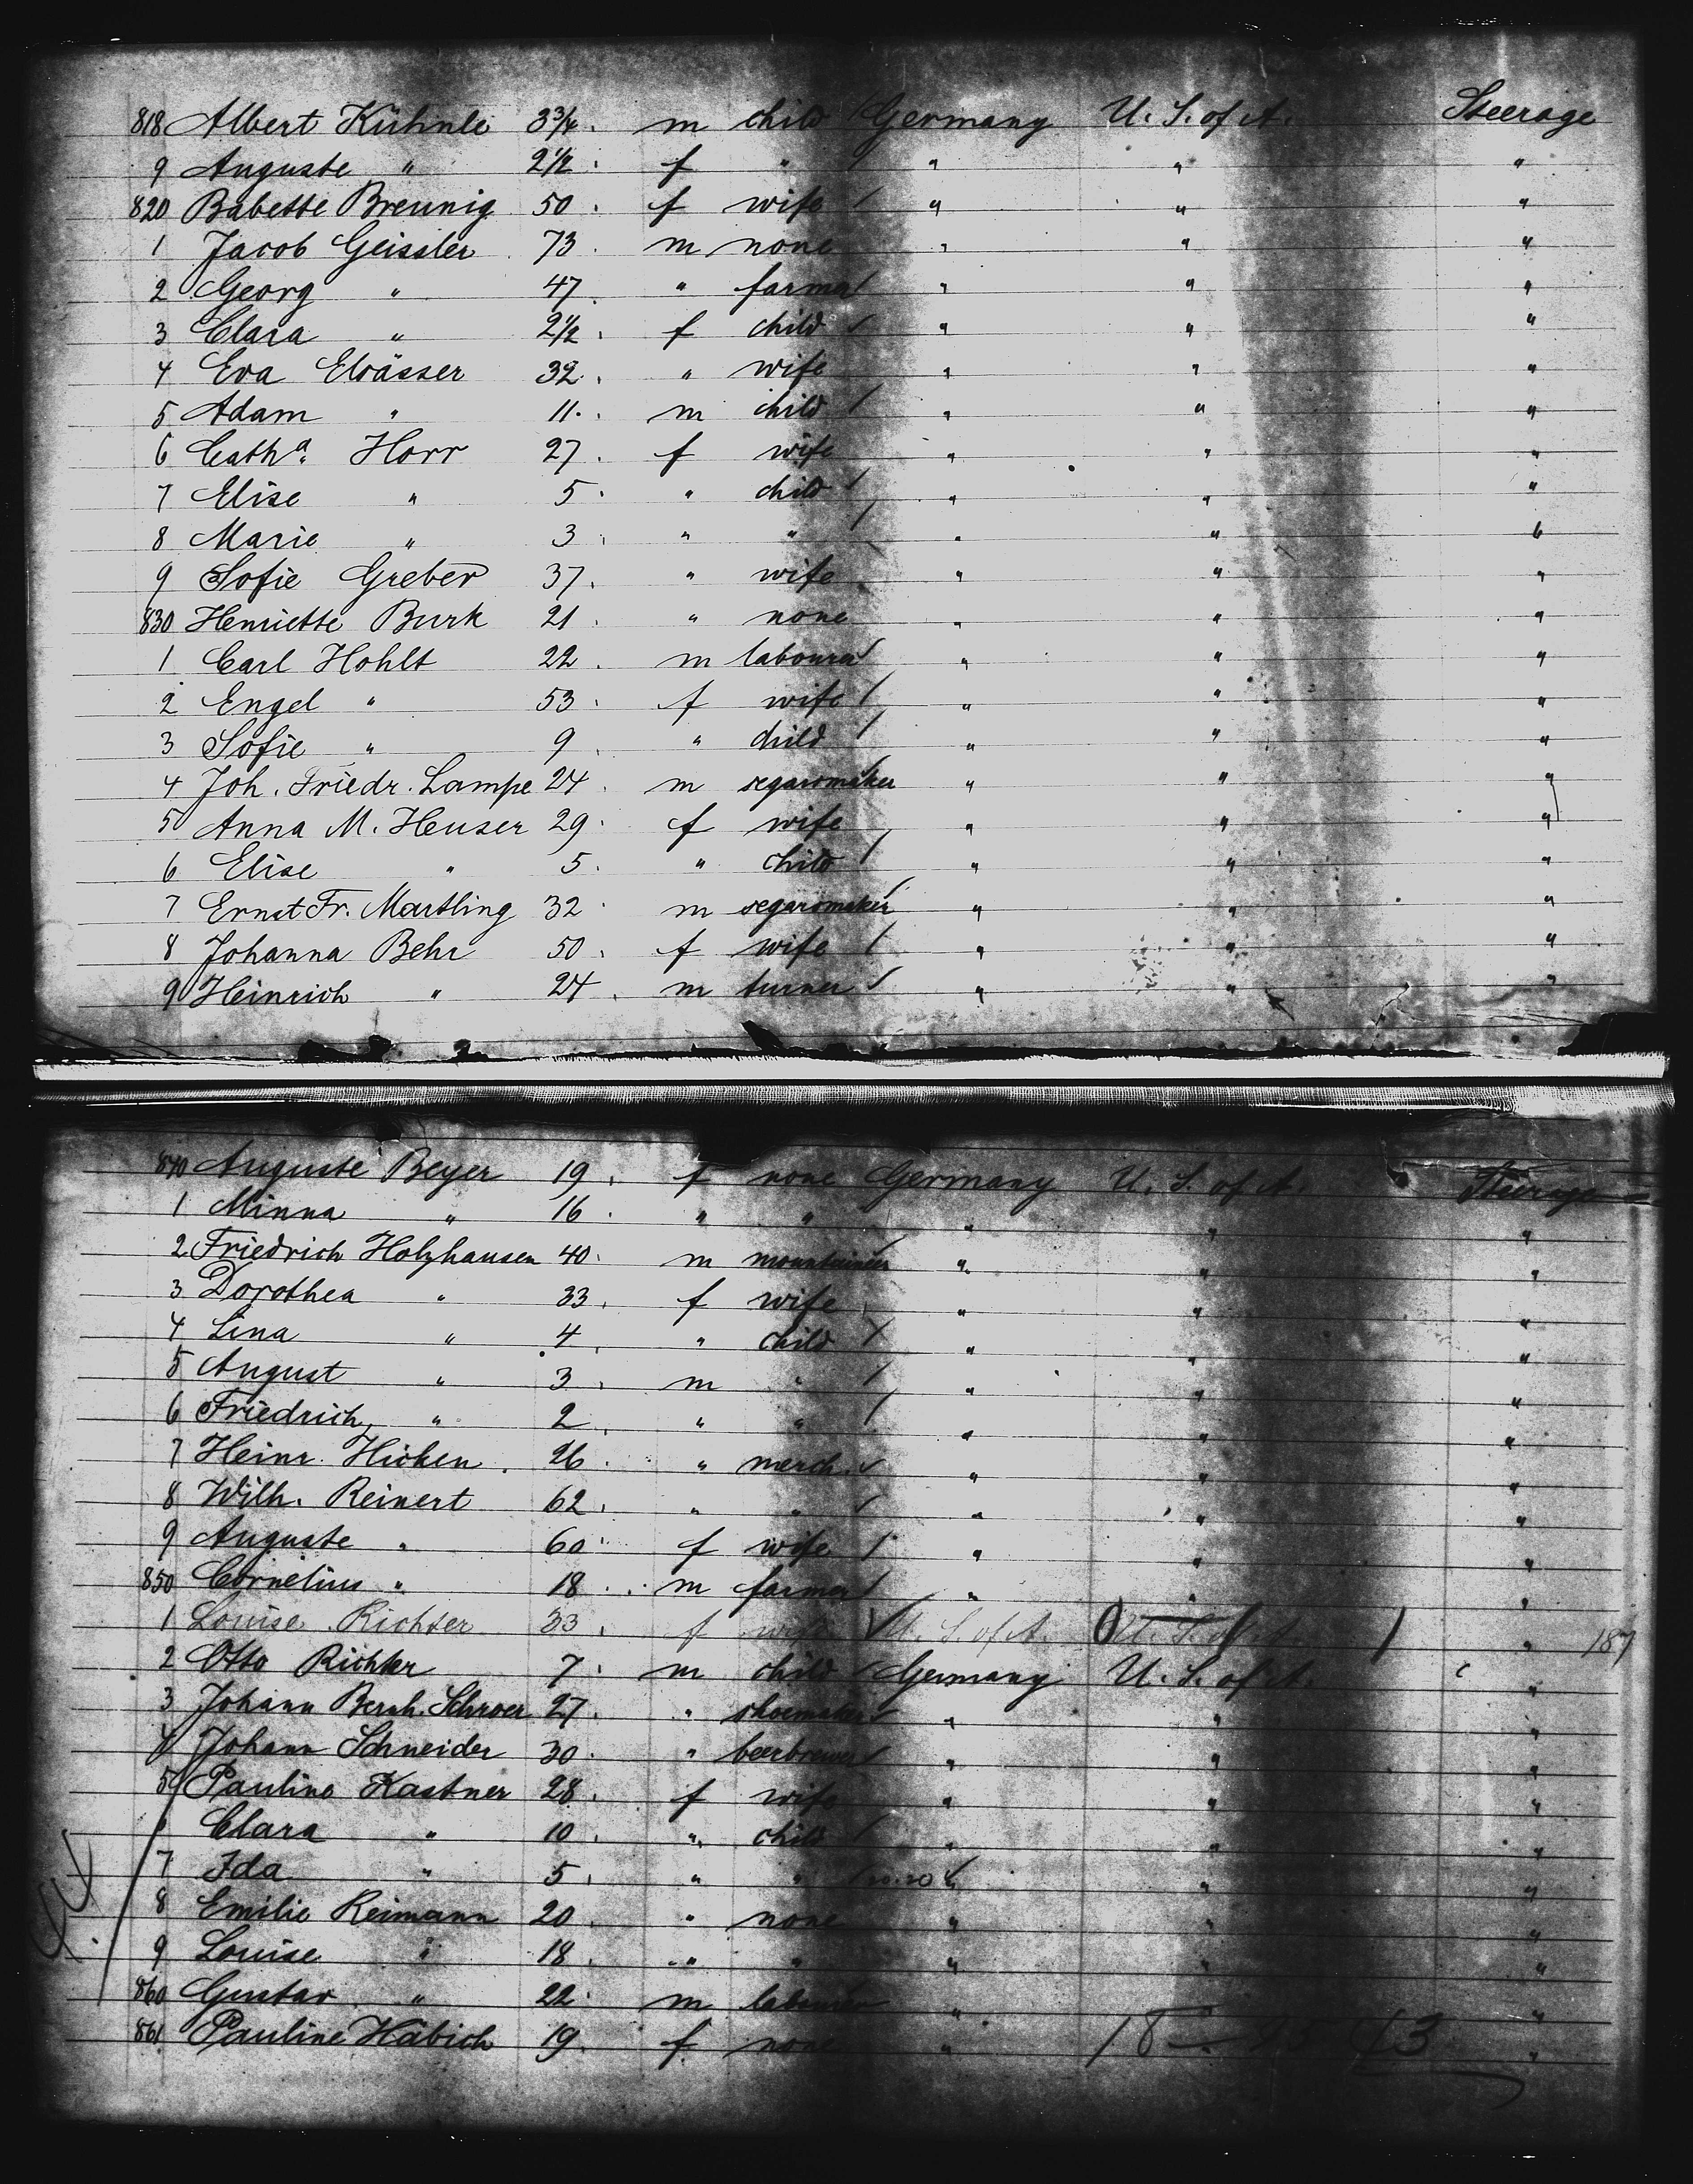 818 Albert Kühnle 3 3/4. m child Germany U. S. of A. Steerage
9 Auguste " 2 1/2. f " " " "
820 Babette Breunig 50. f wife " " "
1 Jacob Geissler 73. m none " " "
2 Georg " 47. " farmer " " "
3 Clara " 2 1/2. f child " " "
4 Eva Elsässer 32. " wife " " "
5 Adam " 11. m child " " "
6 Cath.a Horr 27. f wife " " "
7 Elise " 5. " child " " "
8 Marie " 3. " " " " "
9 Sofie Greber 37. " wife " " "
830 Henriette Burk 21. " none " " "
1 Carl Hohlt 22. m labourer " " "
2 Engel " 53. f wife " " "
3 Sofie " 9. " child " " "
4 Joh. Friedr. Lampe 24. m segarsmaker " " "
5 Anna M. Heuser 29. f wife " " "
6 Elise " 5. " child " " "
7 Ernst Fr. Martling 32. m segarsmaker " " "
8 Johanna Behr 50. f wife " " "
9 Heinrich " 24. m turner " " "
840 Auguste Beyer 19. f none Germany U. S. of A. Steerage
1 Minna " 16. " " " " "
2 Friedrich Holzhausen 40. m mountaineer " " "
3 Dorothea " 33. f wife " " "
4 Lina " 4. " child " " "
5 August " 3. m " " " "
6 Friedrich " 2. " " " " "
7 Heinr. Hicken. 26. " merch. " " "
8 Wilh. Reinert 62. " " " " "
9 Auguste " 60. f wife " " "
850 Cornelius " 18. m farmer " " "
1 Louise Richter 33. f wife U. S. of A. U. S. of A. " 187
2 Otto Richter 7. m child Germany U. S. of A. "
3 Johann Bernh. Schroer 27. " shoemaker " " "
4 Johann Schneider 30. " beerbrewer " " "
5 Pauline Kastner 28. f wife " " "
Clara " 10. " child " " "
7 Ida " 5. " " " " "
8 Emilie Reimann 20. " none " " "
9 Louise " 18. " " " " "
860 Gustav " 22. m labourer " " "
861 Pauline Häbich 19. f none " " "